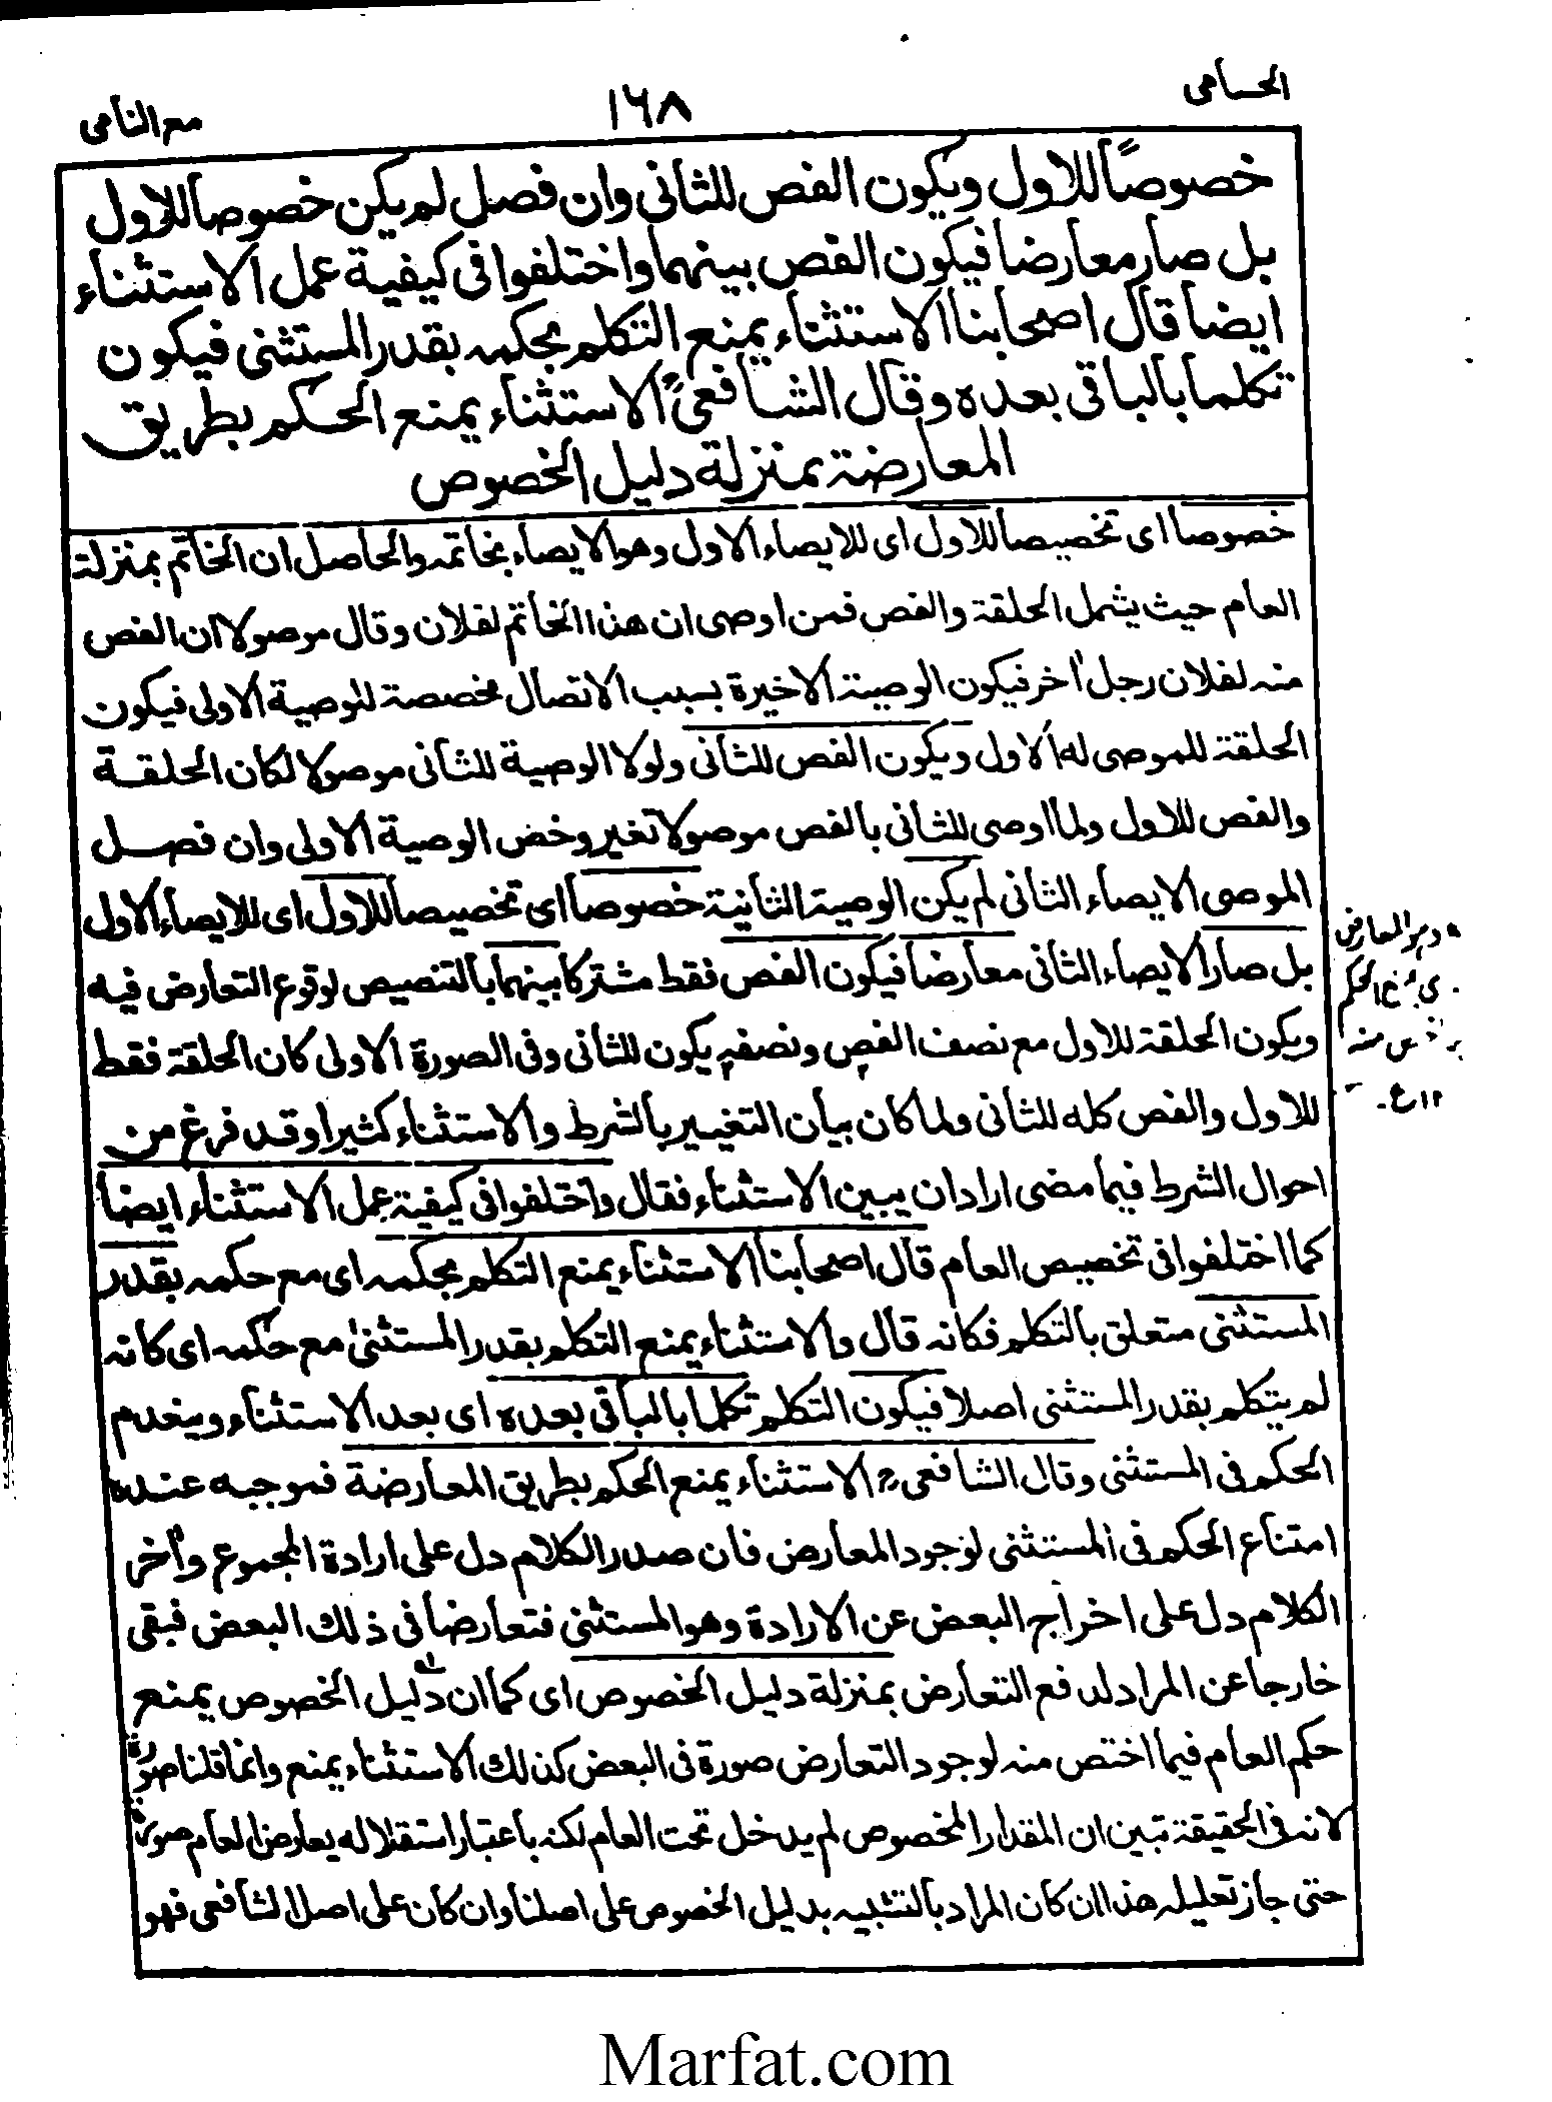 الحسامى
١٦٨
مع النامى
خصوصاً للاول ويكون الفص للثانى وان فصل لم يكن خصوصا للاول
بل صار معارضا فيكون الفص بينهما واختلفوا فى كيفية عمل الاستثناء
ايضا قال اصحابنا الاستثناء يمنع التكلم بحكمه بقدر المستثنى فيكون
تكلما بالباقى بعده وقال الشافعىؒ الاستثناء يمنع الحكم بطريق
المعارضة بمنزلة دليل الخصوص
خصوصا اى تخصيصا للاول اى للايصاء الاول وهو الايصاء بخاتمه والحاصل ان الخاتم بمنزلة
العام حيث يشمل الحلقة والفص فمن اوصى ان هذا الخاتم لفلان وقال موصولا ان الفص
منه لفلان رجل اٰخر فيكون الوصية الاخيرة بسبب الاتصال مخصصة للوصية الاولى فيكون
الحلقة للموصى له الاول ويكون الفص للثانى ولولا الوصية للثانى موصولا لكان الحلقة
والفص للاول ولما اوصى للثانى بالفص موصولا تغير وخض الوصية الاولى وان فصل
الموصى الايصاء الثانى لم يكن الوصية الثانية خصوصا اى تخصيصا للاول اى للايصاء الاول
بل صار الايصاء الثانى معارضا فيكون الفص فقط مشتركا بينهما بالتنصيص لوقوع التعارض فيه
ويكون الحلقة للاول مع نصف الفص ونصفه يكون للثانى وفى الصورة الاولى كان الحلقة فقط
للاول والفص كله للثانى ولما كان بيان التغيير بالشرط والاستثناء كثيرا وقد فرغ من
احوال الشرط فيما مضى اراد ان يبين الاستثناء فقال واختلفوا فى كيفية عمل الاستثناء ايضا
كما اختلفوا فى تخصيص العام قال اصحابنا الاستثناء يمنع التكلم بحكمه اى مع حكمه بقدر
المستثنى متعلق بالتكلم فكانه قال والاستثناء يمنع التكلم بقدر المستثنىٰ مع حكمه اى كانه
لم يتكلم بقدر المستثنى اصلا فيكون التكلم تكلما بالباقى بعده اى بعد الاستثناء وينعدم
الحكم فى المستثنى وقال الشافعىؒ الاستثناء يمنع الحكم بطريق المعارضة فموجبه عنده
امتناع الحكم فى المستثنى لوجود المعارض فان صدر الكلام دل على ارادة المجموع واٰخر
الكلام دل على اخراج البعض عن الارادة وهو المستثنى فتعارضا فى ذلك البعض فبقى
خارجا عن المراد لدفع التعارض بمنزلة دليل الخصوص اى كما ان دليل الخصوص يمنع
حكم العام فيما اختص منه لوجود التعارض صورة فى البعض كذلك الاستثناء يمنع وانما قلنا صورة
لانه فى الحقيقة تبين ان المقدار المخصوص لم يدخل تحت العام لكنه باعتبار استقلاله يعارض العام صورة
حتى جاز تعليله هذا ان كان المراد بالتشبيه بدليل الخصوص على اصلنا وان كان على اصل الشافعى فهو
وهو المعارض
الحكم
منه
١٢ ع
Marfat.com